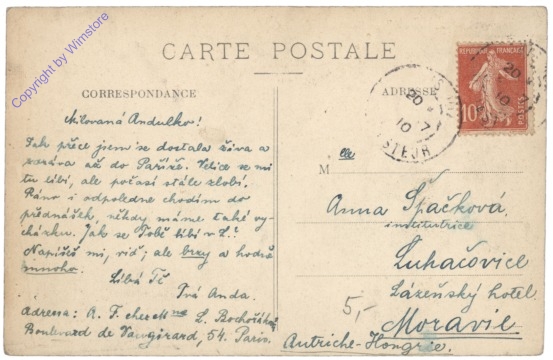 CARTE POSTALE
CORRESPONDANCE
ADRESSE
RÉPUBLIQUE FRANÇAISE
10
POSTES
20
10
7
Milovaná Andulko!
Tak přece jsem se dostala živa a
zdráva až do Paříže. Velice se mi
tu líbí, ale počasí stále zlobí.
Ráno i odpoledne chodím do
přednášek, někdy máme také vy-
cházku. Jak se Tobě líbí v L.?
Napíšeš mi, viď, ale brzy a hodně
mnoho.
Líbá Tě
Tvá Anda.
Adressa: R. F. chez M L. Bochořák
Boulevard de Vaugirard, 54. Paris.
M lle
Anna Spačková,
institutrice
Luhačovice
Lázeňský hotel
Moravie
Autriche-Hongrie.
5,-
Copyright by Wimstore